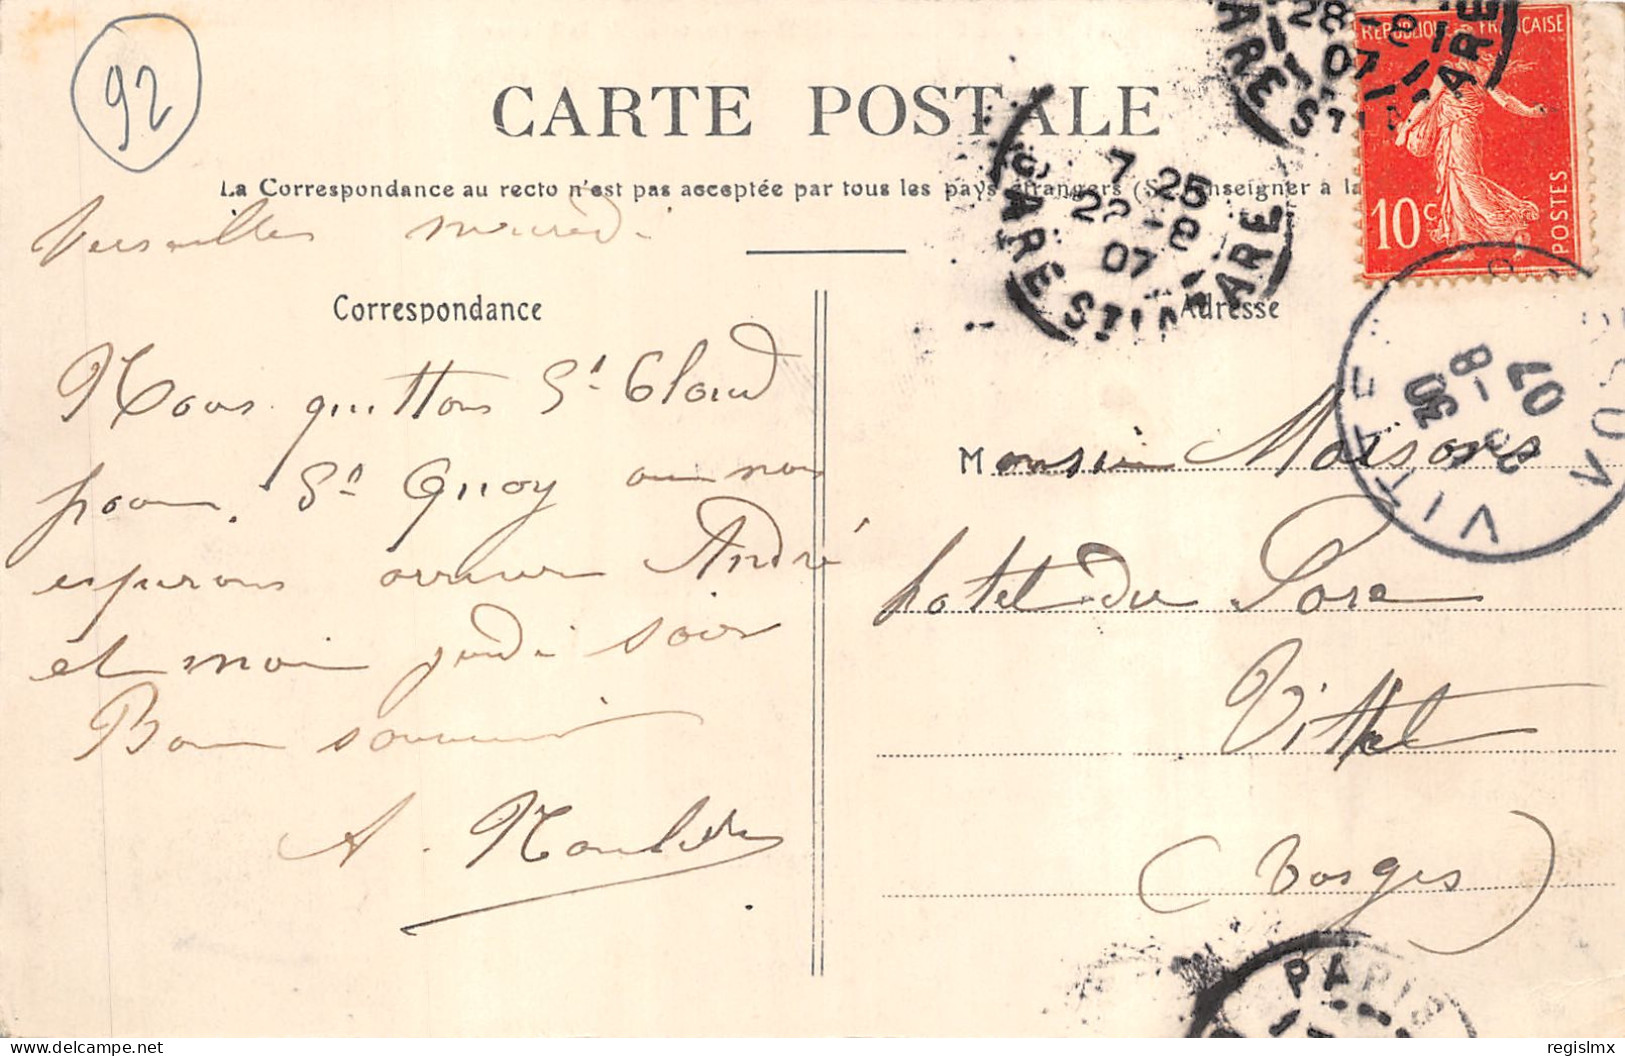 92
CARTE POSTALE
La Correspondance au recto n'est pas acceptée par tous les pays étrangers (Se renseigner à la
RÉPUBLIQUE FRANÇAISE
10 c
POSTES
7 25
28-8
07
GARE ST LAZARE
28-8
07
GARE ST LAZARE
VITTEL
VOSGES
30
-8
07
Versailles mercredi
Correspondance
Nous quittons St Cloud
pour St Quay où nous
espérons arriver André
et moi jeudi soir
Bon souvenir
A.
Adresse
Monsieur
hotel du Parc
Vittel
(Vosges)
PARIS
regislmx